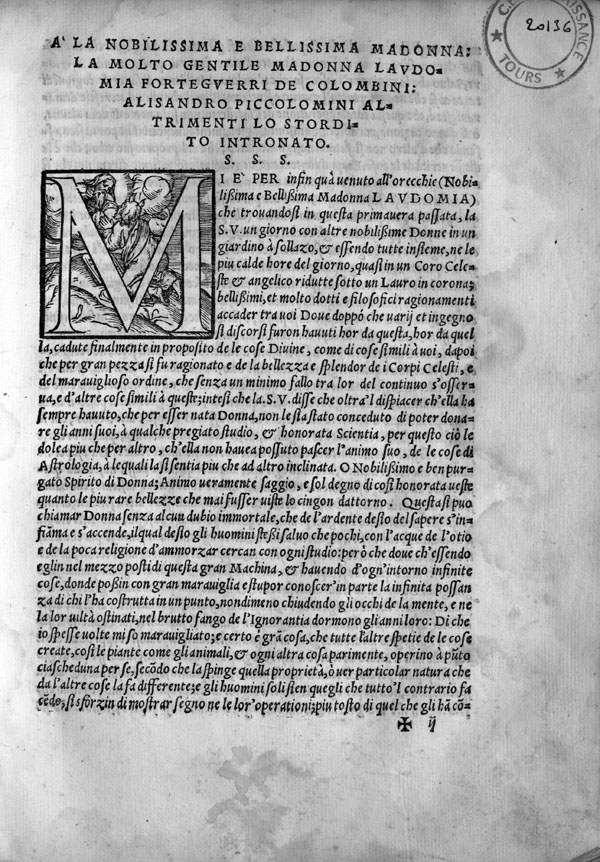 C. ISSANCE
20136
★ TOURS ★
A' LA NOBILISSIMA E BELLISSIMA MADONNA:
LA MOLTO GENTILE MADONNA LAVDO-
MIA FORTEGVERRI DE COLOMBINI:
ALISANDRO PICCOLOMINI AL-
TRIMENTI LO STORDI-
TO INTRONATO.
S. S. S.
MI E' PER inſin quà venuto all'orecchie (Nobi-
liſſima e Belliſſima Madonna LAVDOMIA)
che trouandoſi in queſta primauera paſſata, la
S.V. un giorno con altre nobiliſsime Donne in un
giardino à ſollazo, & eſſendo tutte inſieme, ne le
piu calde hore del giorno, quaſi in un Coro Cele-
ſte & angelico ridutte ſotto un Lauro in corona;
belliſsimi, et molto dotti e filoſofici ragionamenti
accader tra uoi Doue doppò che uarij et ingegno
ſi diſcorſi furon hauuti hor da queſta, hor da quel
la, cadute finalmente in propoſito de le coſe Diuine, come di coſe ſimili à uoi, dapoi
che per gran pezza ſi fu ragionato e de la bellezza e ſplendor de i Corpi Celeſti, e
del marauiglioſo ordine, che ſenza un minimo fallo tra lor del continuo s'oſſer-
ua, e d'altre coſe ſimili à queſte; inteſi che la. S.V. diſſe che oltra'l diſpiacer ch'ella ha
ſempre hauuto, che per eſſer nata Donna, non le ſia ſtato conceduto di poter dona-
re gli anni ſuoi, à qualche pregiato ſtudio, & honorata Scientia, per queſto ciò le
dolea piu che per altro, ch'ella non hauea poſſuto paſcer l'animo ſuo, de le coſe di
Aſtrologia, à le quali la ſi ſentia piu che ad altro inclinata. O Nobiliſsimo e ben pur-
gato Spirito di Donna; Animo ueramente ſaggio, e ſol degno di coſi honorata ueſte
quanto le piu rare bellezze che mai fuſſer uiſte lo cingon dattorno. Queſta ſi puo
chiamar Donna ſenza alcun dubio immortale, che de l'ardente deſio del ſapere s'in-
fiãma e s'accende, il qual deſio gli huomini ſteſsi ſaluo che pochi, con l'acque de l'otio
e de la poca religione d'ammorzar cercan con ogni ſtudio: però che doue ch'eſſendo
eglin nel mezzo poſti di queſta gran Machina, & hauendo d'ogn'intorno infinite
coſe, donde poſsin con gran marauiglia e ſtupor conoſcer'in parte la infinita poſſan
za di chi l'ha coſtrutta in un punto, nondimeno chiudendo gli occhi de la mente, e ne
la lor uiltà oſtinati, nel brutto fango de l'Ignorantia dormono gli anni loro: Di che
io ſpeſſe uolte mi ſo marauigliato; e certo è grã coſa, che tutte l'altre ſpetie de le coſe
create, coſi le piante come gli animali, & ogni altra coſa parimente, operino à pũto
ciaſcheduna per ſe, ſecõdo che la ſpinge quella proprietà, ò uer particolar natura che
da l'altre coſe la fa differente; e gli huomini ſoli ſien quegli che tutto'l contrario fa
cẽdo; ſi sforzin di moſtrar ſegno ne le lor'operationi; piu toſto di quel che gli hã cõ-
✠ ij